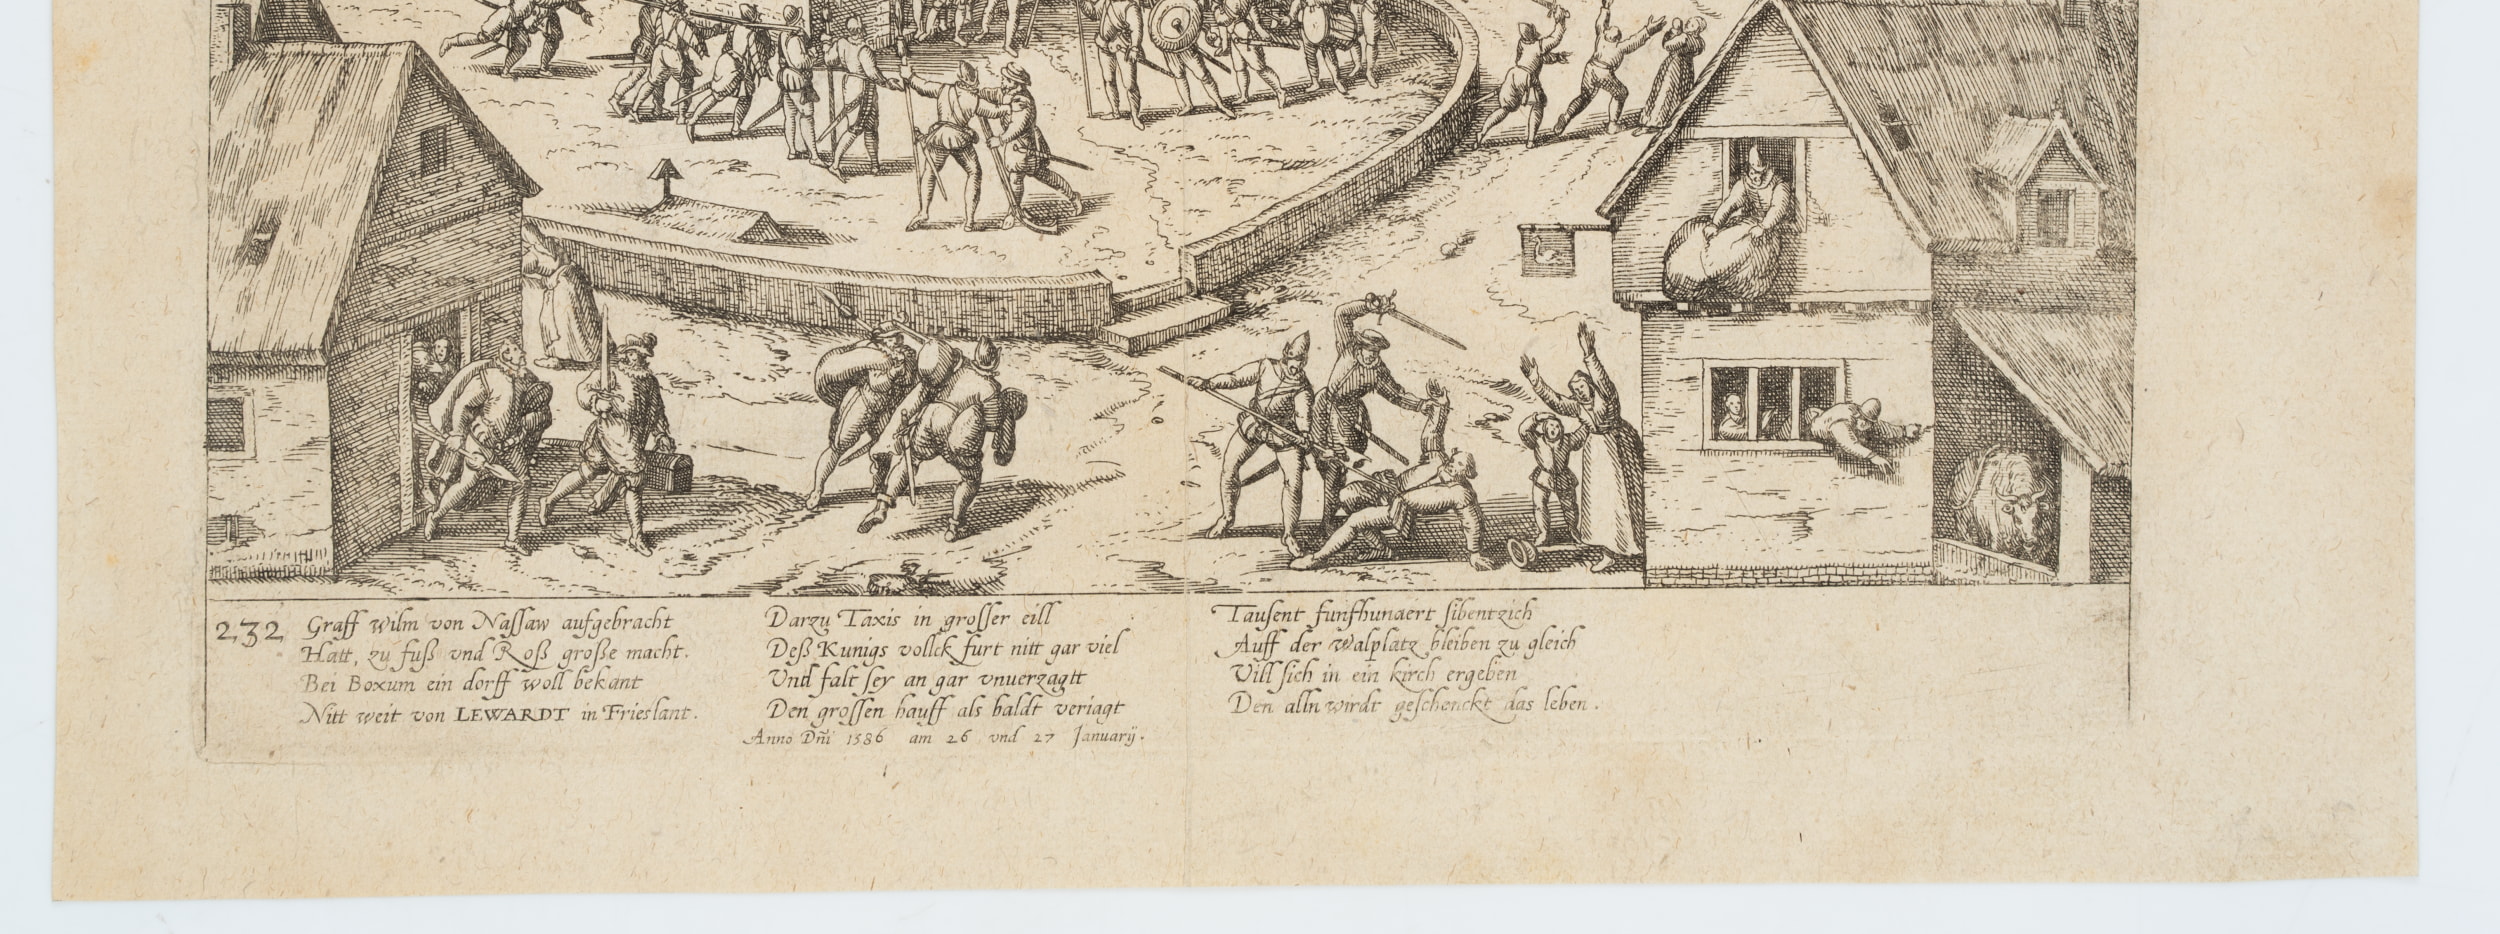 232
Graff wilm von Nassaw aufgebracht
Hatt, zu fuß vnd Roß große macht.
Bei Boxum ein dorff woll bekant
Nitt weit von LEWARDT in Frieslant.
Darzu Taxis in grosser eill
Deß Kunigs vollck furt nitt gar viel
Und falt sey an gar vnuerzagtt
Den grossen hauff als baldt veriagt
Tausent funfhundert sibentzich
Auff der walplatz bleiben zu gleich
Vill sich in ein kirch ergeben
Den alln wirdt geschenckt das leben.
Anno Dñi 1586 am 26 vnd 27 Januarij.